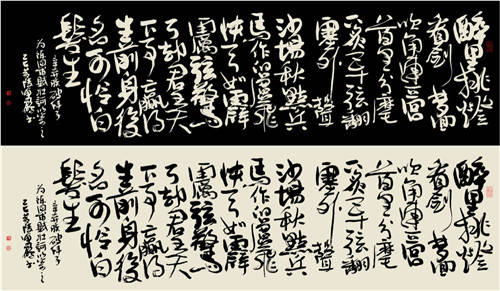 醉里挑燈
看劍夢回
吹角連營
八百里分麾
下炙五十弦翻
塞外聲
沙場秋點兵
馬作的盧飛
快弓如霹
靂弦驚
了卻君王天
下事贏得
生前身後
名可憐白
髮生
辛棄疾破陣子
為陳同甫賦壯詞以寄之
醉里挑燈
看劍夢回
吹角連營
八百里分麾
下炙五十弦翻
塞外聲
沙場秋點兵
馬作的盧飛
快弓如霹
靂弦驚
了卻君王天
下事贏得
生前身後
名可憐白
髮生
辛棄疾破陣子
為陳同甫賦壯詞以寄之